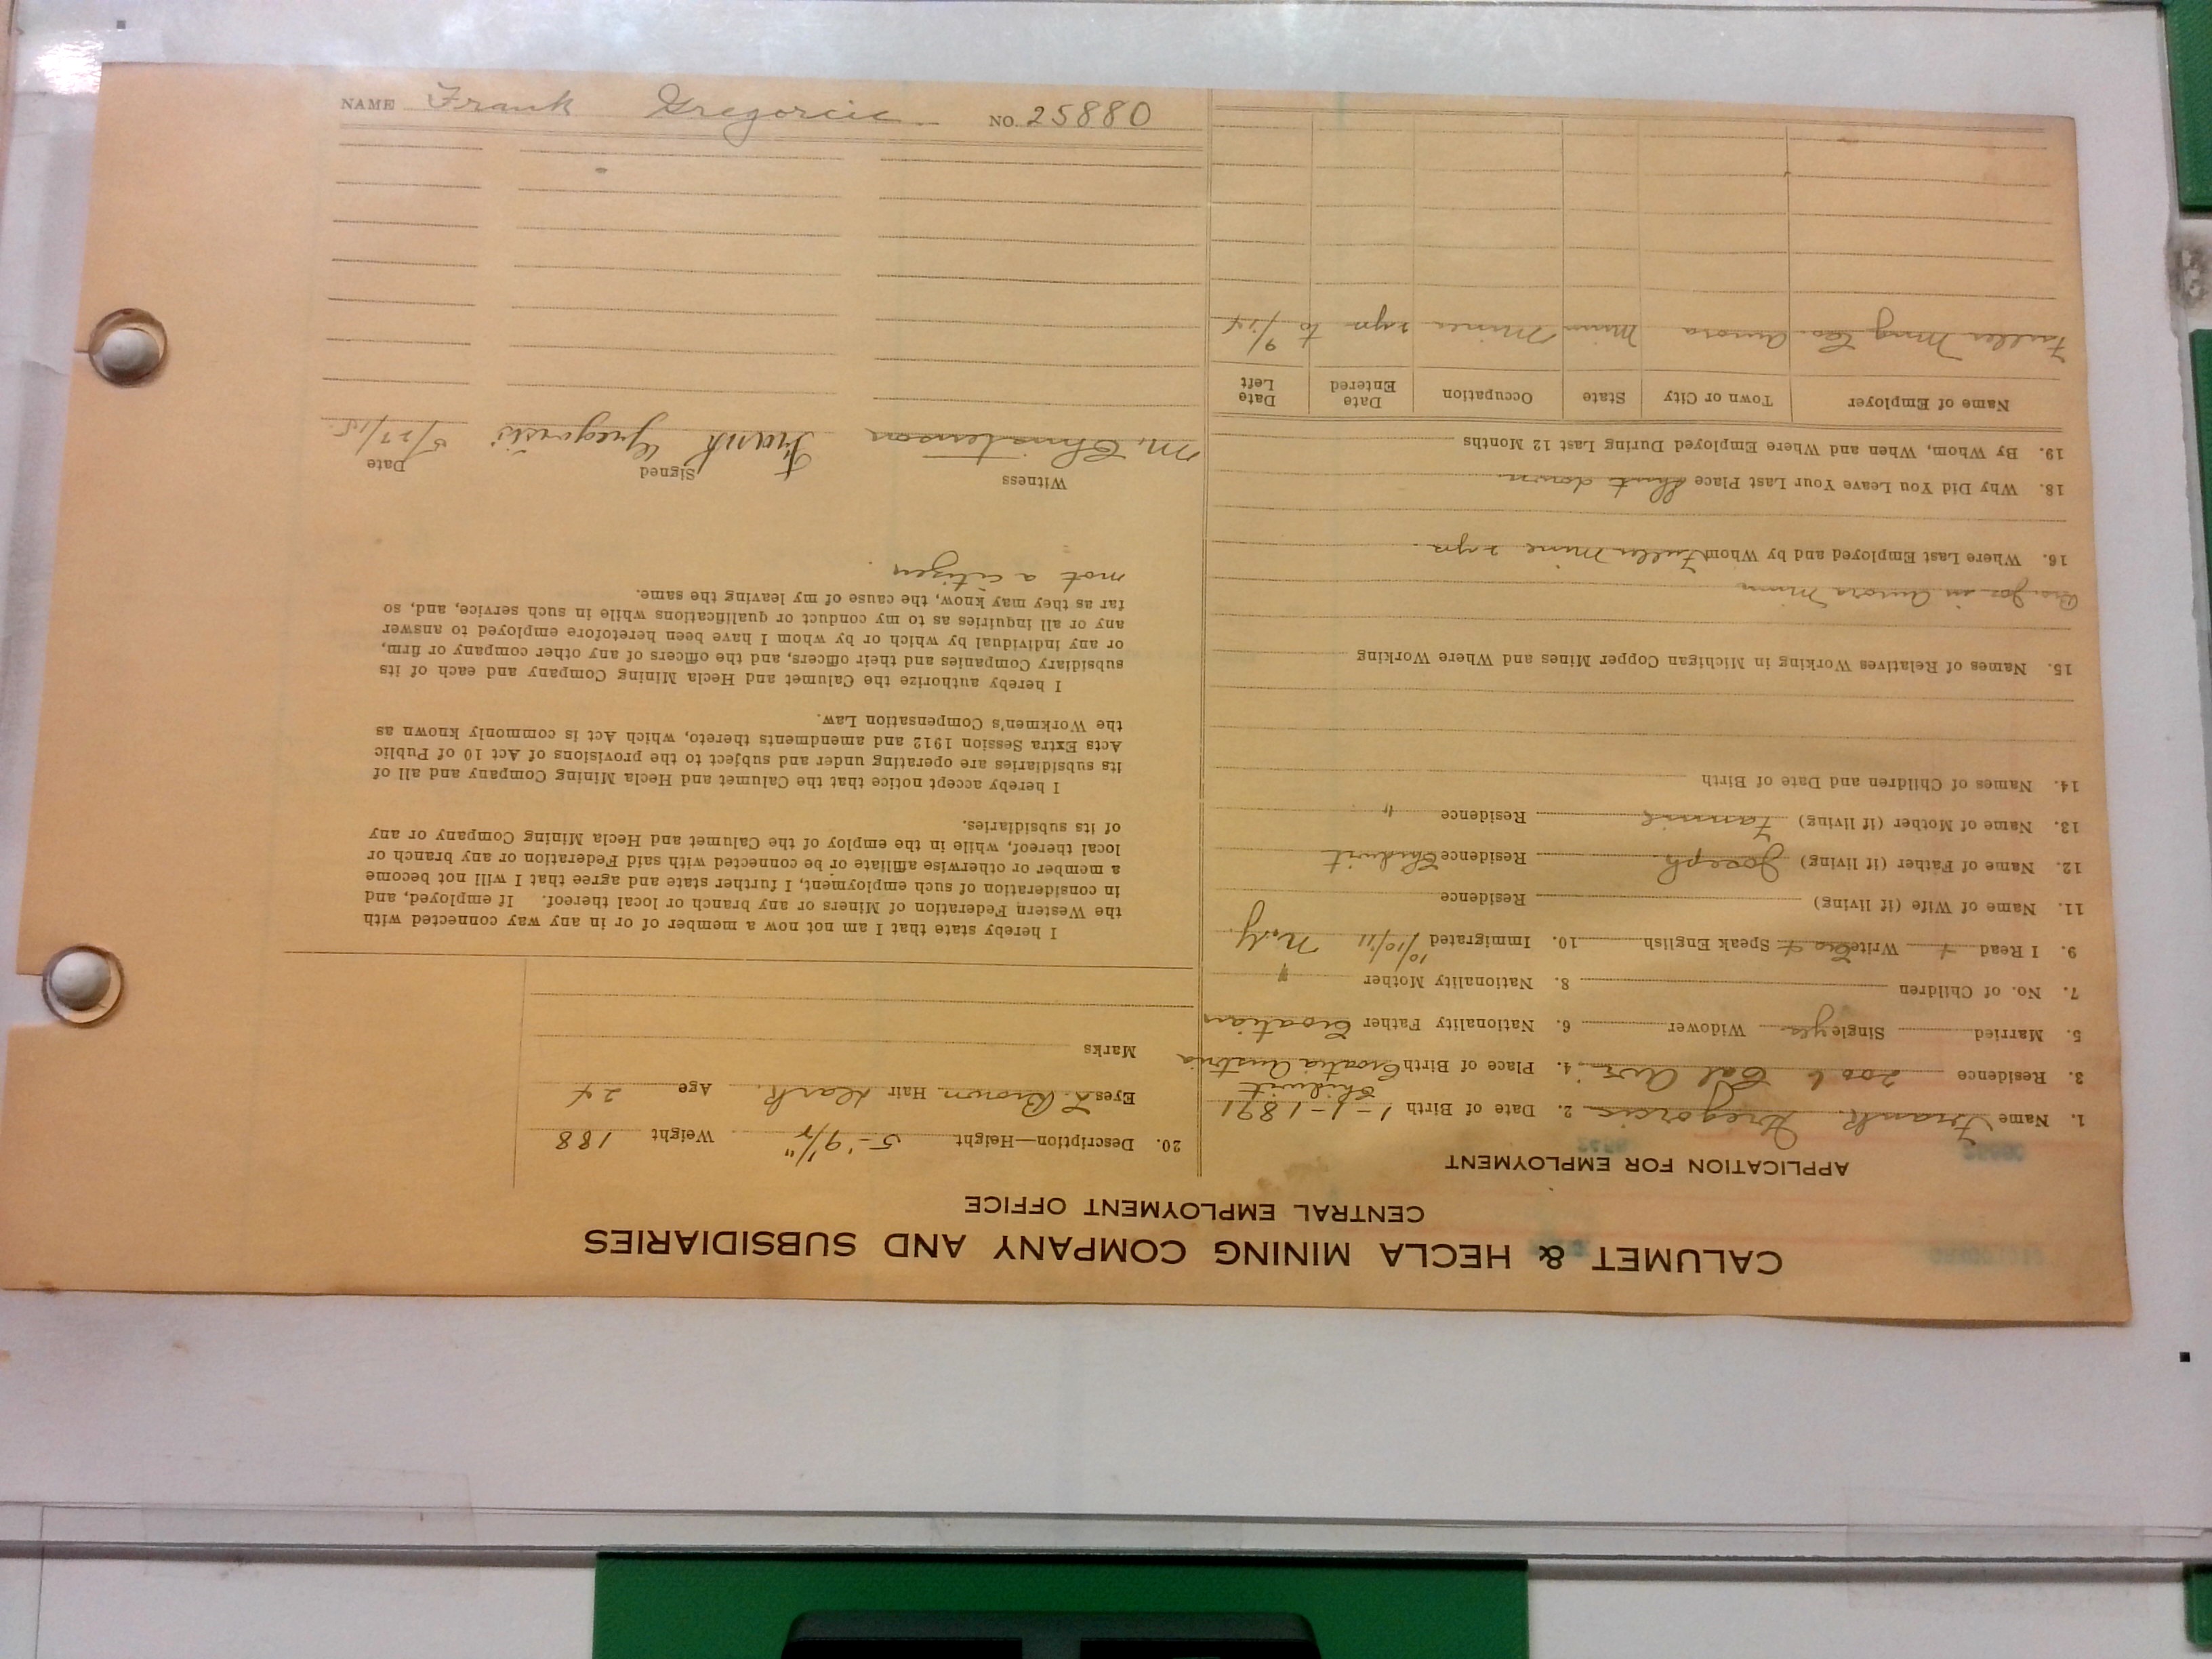 CALUMET & HECLA MINING COMPANY AND SUBSIDIARIES
CENTRAL EMPLOYMENT OFFICE
APPLICATION FOR EMPLOYMENT
1. Name Frank Gregorcic 2. Date of Birth 1-1-1891
3. Residence 2006 Cal Ave. 4. Place of Birth Croatia Austria
5. Married Single yes Widower 6. Nationality Father Croatian
7. No. of Children 8. Nationality Mother "
9. I Read + Write Cro + Speak English 10. Immigrated 10/10/11 N.Y.
11. Name of Wife (if living) Residence
12. Name of Father (if living) Joseph Residence
13. Name of Mother (if living) Residence "
14. Names of Children and Date of Birth
15. Names of Relatives Working in Michigan Copper Mines and Where Working
Bro. Joe in Aurora Minn
16. Where Last Employed and by Whom Fuller Mine 2 yrs.
18. Why Did You Leave Your Last Place Shut down
19. By Whom, When and Where Employed During Last 12 Months
Name of Employer Town or City State Occupation Date Entered Date Left
Fuller Mng Co. Aurora Minn Miner 2 yrs to 9/14
20. Description—Height 5-9 1/4" Weight 188
Eyes L. Brown Hair Dark Age 24
Marks
I hereby state that I am not now a member of or in any way connected with
the Western Federation of Miners or any branch or local thereof. If employed, and
in consideration of such employment, I further state and agree that I will not become
a member or otherwise affiliate or be connected with said Federation or any branch or
local thereof, while in the employ of the Calumet and Hecla Mining Company or any
of its subsidiaries.
I hereby accept notice that the Calumet and Hecla Mining Company and all of
its subsidiaries are operating under and subject to the provisions of Act 10 of Public
Acts Extra Session 1912 and amendments thereto, which Act is commonly known as
the Workmen's Compensation Law.
I hereby authorize the Calumet and Hecla Mining Company and each of its
subsidiary Companies and their officers, and the officers of any other company or firm,
or any individual by which or by whom I have been heretofore employed to answer
any or all inquiries as to my conduct or qualifications while in such service, and, so
far as they may know, the cause of my leaving the same.
not a citizen.
Witness Signed Date
M. Christenson Frank Gregorski 5/27/15.
NAME Frank Gregorcic NO. 25880